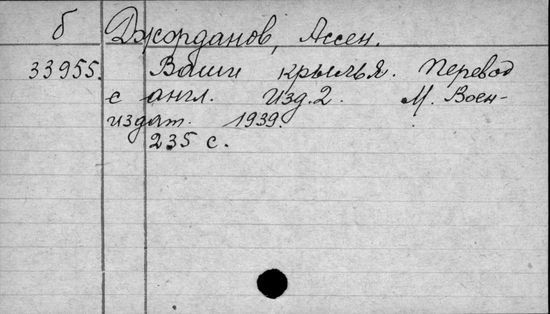 б Джорданов, Ассен.
33955. Ваши крылья. Перевод
с англ. Изд. 2. М. Воен-
издат. 1939.
235 с.